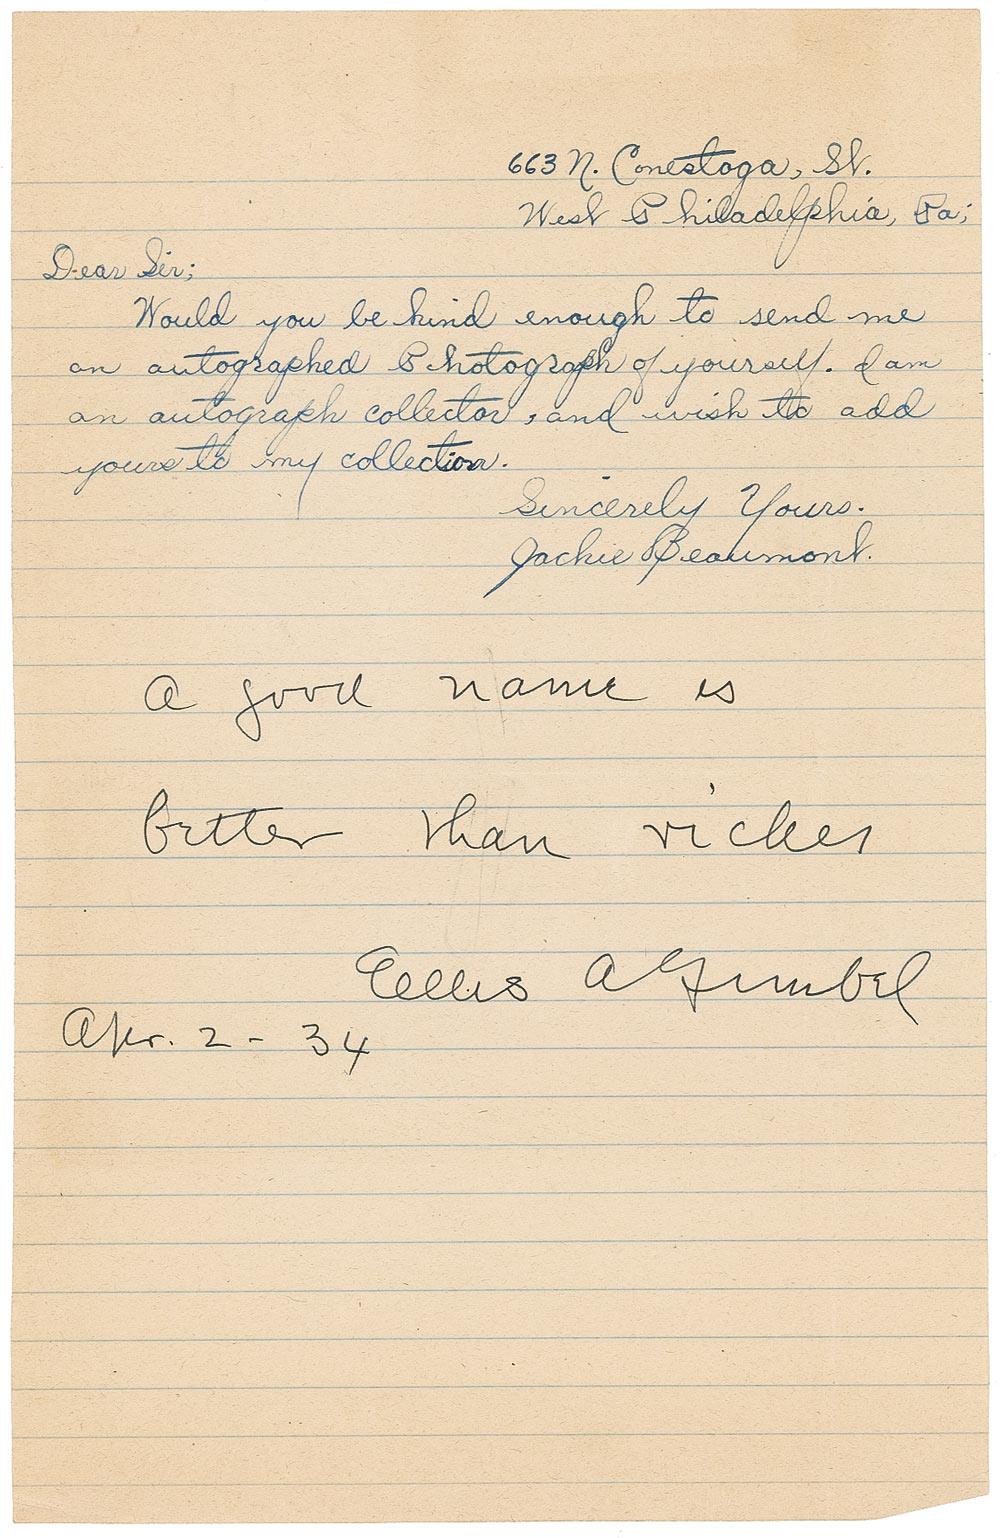 663 N. Conestoga, St.
West Philadelphia, Pa;
Dear Sir;
Would you be kind enough to send me
an autographed Photograph of yourself. I am
an autograph collector, and wish to add
yours to my collection.
Sincerely Yours.
Jackie Beaumont.
A good name is
better than riches
Ellis A Gimbel
Apr. 2 - 34